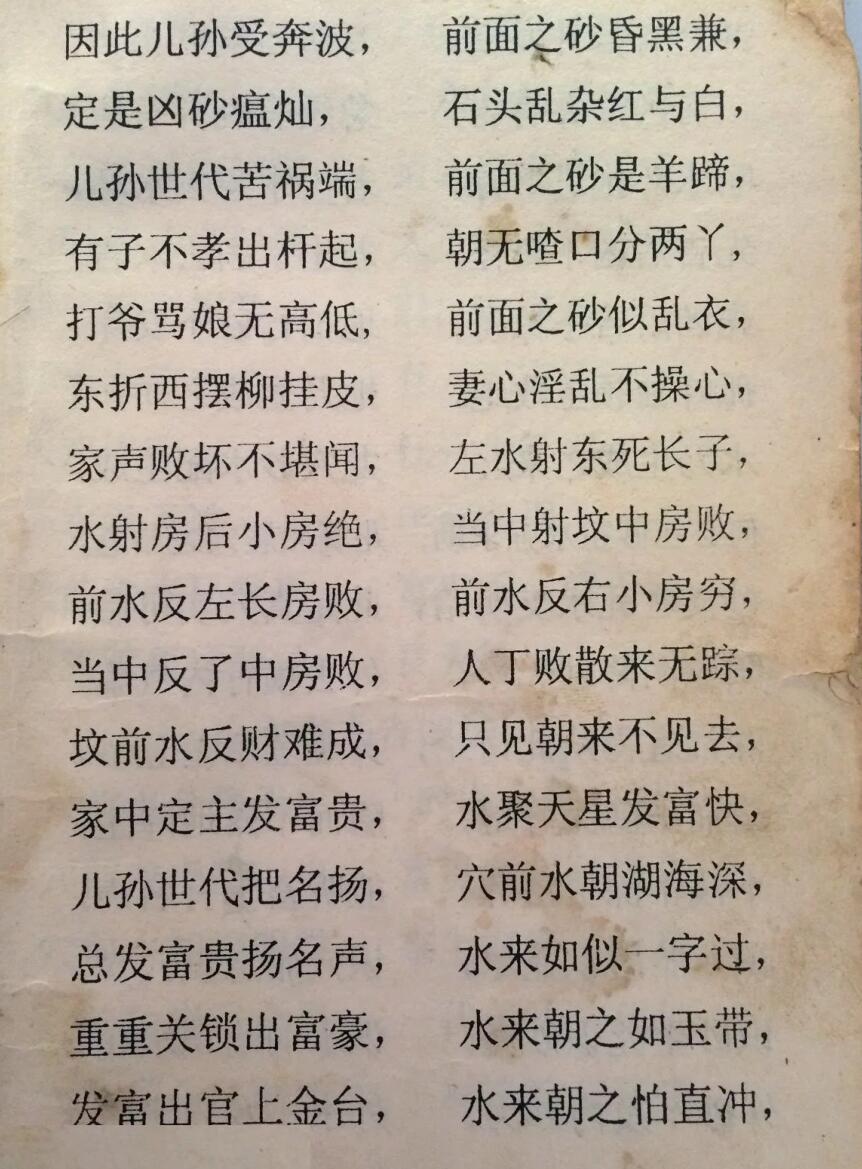 因此儿孙受奔波， 前面之砂昏黑兼，
定是凶砂瘟灿， 石头乱杂红与白，
儿孙世代苦祸端， 前面之砂是羊蹄，
有子不孝出杆起， 朝无喳口分两丫，
打爷骂娘无高低， 前面之砂似乱衣，
东折西摆柳挂皮， 妻心淫乱不操心，
家声败坏不堪闻， 左水射东死长子，
水射房后小房绝， 当中射坟中房败，
前水反左长房败， 前水反右小房穷，
当中反了中房败， 人丁败散来无踪，
坟前水反财难成， 只见朝来不见去，
家中定主发富贵， 水聚天星发富快，
儿孙世代把名扬， 穴前水朝湖海深，
总发富贵扬名声， 水来如似一字过，
重重关锁出富豪， 水来朝之如玉带，
发富出官上金台， 水来朝之怕直冲，